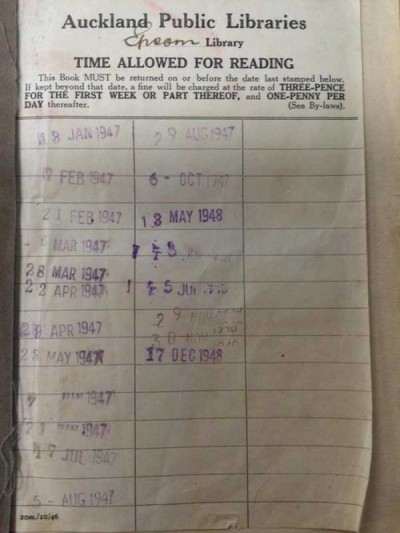 Auckland Public Libraries
Epsom Library
TIME ALLOWED FOR READING
This Book MUST be returned on or before the date last stamped below.
If kept beyond that date, a fine will be charged at the rate of THREE-PENCE
FOR THE FIRST WEEK OR PART THEREOF, and ONE-PENNY PER
DAY thereafter. (See By-laws).
8 JAN 1947
FEB 1947
21 FEB 1947
MAR 1947
28 MAR 1947
22 APR 1947
APR 1947
MAY 1947
1947
1947
JUL 1947
5 - AUG 1947
29 AUG 1947
6 - OCT 1947
13 MAY 1948
5 JUL
29 NOV
30 NOV
17 DEC 1948
20m./10/46